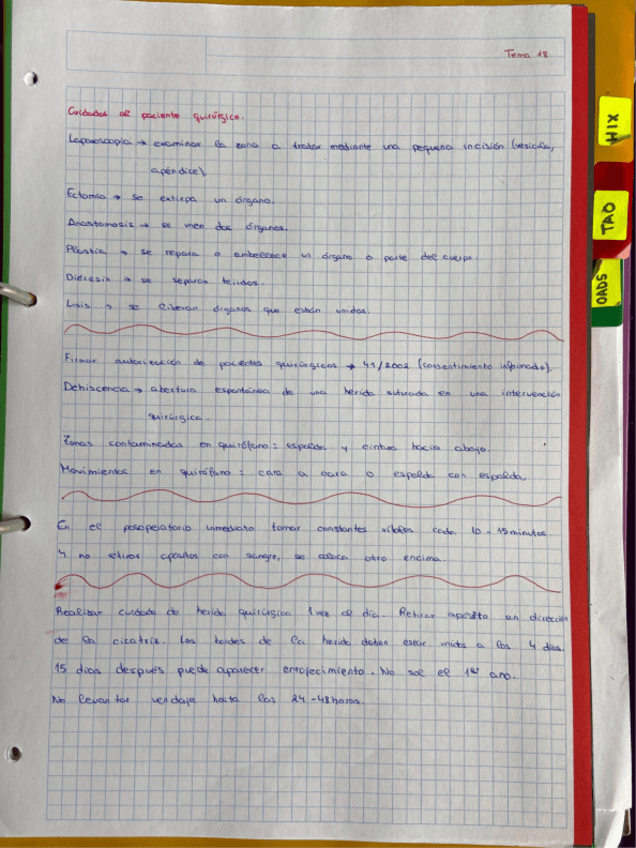 Tema 18
Cuidados al paciente quirúrgico.
Laparoscopia → examinar la zona a tratar mediante una pequeña incisión (vesícula,
apéndice).
Ectomía → se extirpa un órgano.
Anastomosis → se unen dos órganos.
Plastia → se repara o embellece un órgano o parte del cuerpo.
Diéresis → se separan tejidos.
Lisis → se liberan órganos que están unidos.
Firmar autorización de pacientes quirúrgicos → 41/2002 (consentimiento informado).
Dehiscencia → abertura espontánea de una herida suturada en una intervención
quirúrgica.
Zonas contaminadas en quirófano: espalda y cintura hacia abajo.
Movimientos en quirófano: cara a cara o espalda con espalda.
En el posoperatorio inmediato tomar constantes vitales cada 10-15 minutos
y no retirar apósitos con sangre, se coloca otro encima.
Realizar cuidado de herida quirúrgica 1 vez al día. Retirar apósito en dirección
de la cicatriz. Los bordes de la herida deben estar unidos a los 4 días.
15 días después puede aparecer enrojecimiento. No sol el 1er año.
No levantar vendaje hasta las 24-48 horas.
XIH
TAO
OADS